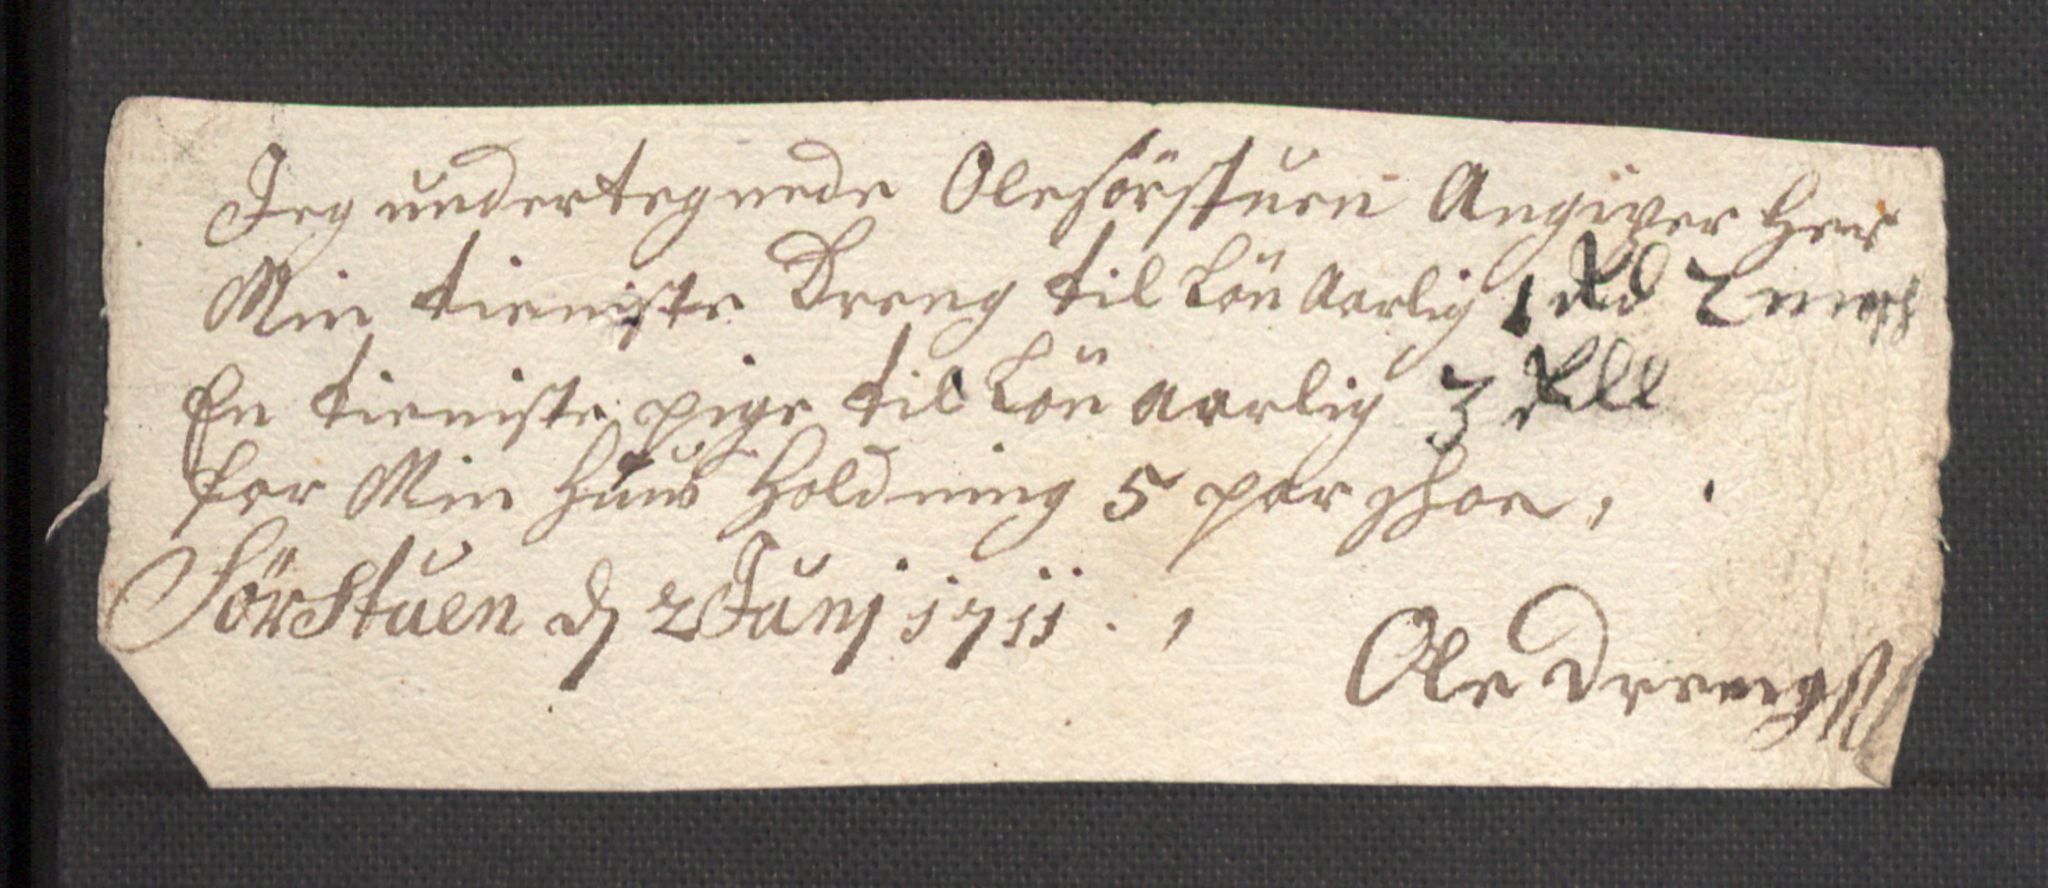 Jeg undertegnede Ole Sörstuen Angiver Her
Min tieniste Dreng til Lön Aarlig 1 Rd 2 mrk
En tieniste pige til Lön aarlig 3 Rdl
for Min Huus Holdning 5 par Shoe,
Sörstuen d 2 Junj 1711.
Ole Dreng